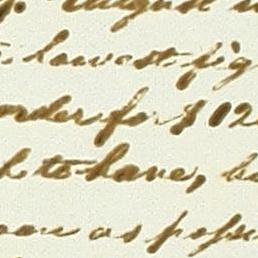 August
lowest fig
order for $102
to have, b
as possi